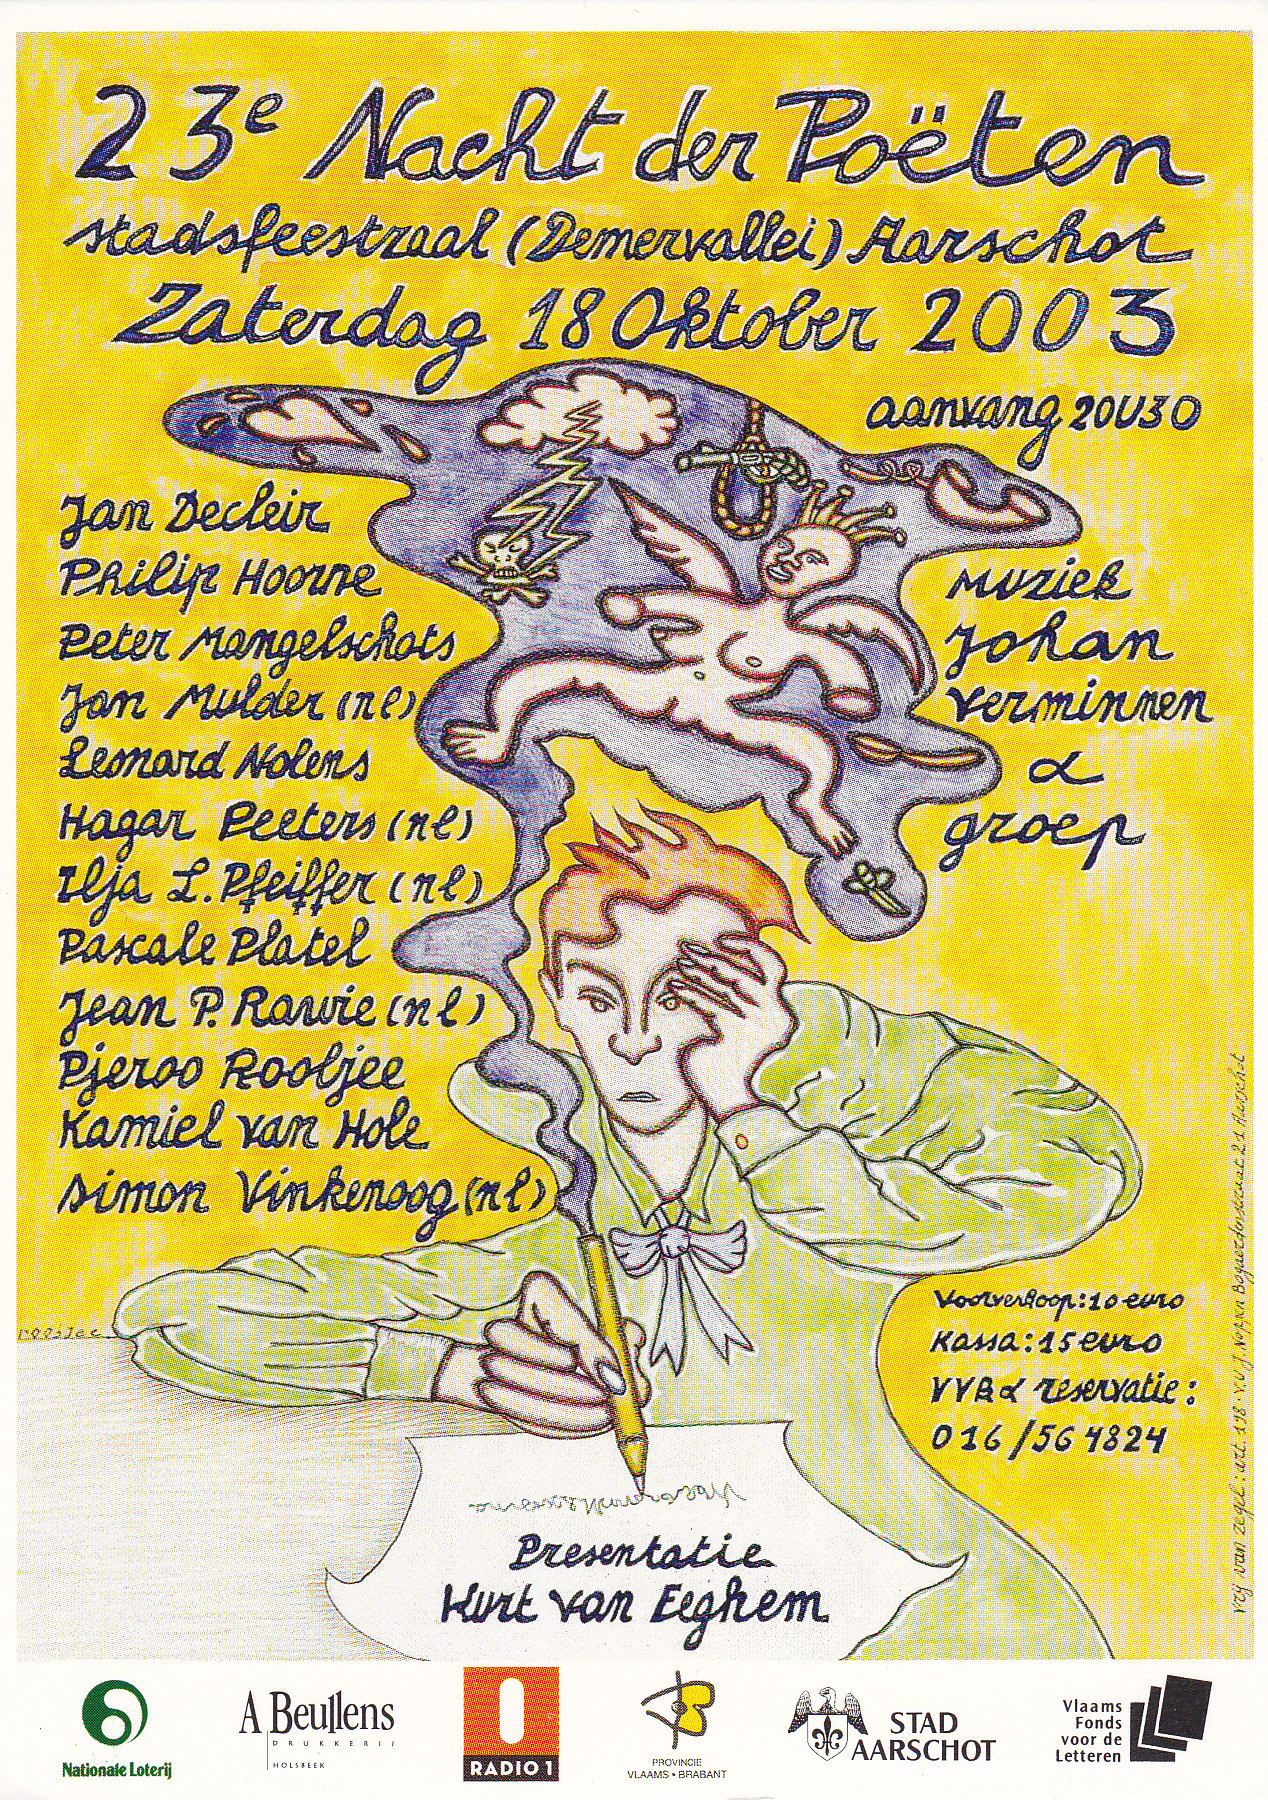 23e Nacht der Poëten
stadsfeestzaal (Demervallei) Aarschot
Zaterdag 18 Oktober 2003
aanvang 20U30
Jan Decleir
Philip Hoorne
Peter Mangelschots
Jan Mulder (nl)
Leonard Nolens
Hagar Peeters (nl)
Ilja L. Pfeiffer (nl)
Pascale Platel
Jean P. Rawie (nl)
Pjeroo Roobjee
Kamiel van Hole
Simon Vinkenoog (nl)
Muziek
Johan
Verminnen
&
groep
roobjee
Voorverkoop: 10 euro
Kassa: 15 euro
VVB & reservatie:
016/56 4824
Presentatie
Kurt van Eeghem
Nationale Loterij
A Beullens
DRUKKERIJ
HOLSBEEK
RADIO 1
PROVINCIE
VLAAMS • BRABANT
STAD
AARSCHOT
Vlaams
Fonds
voor de
Letteren